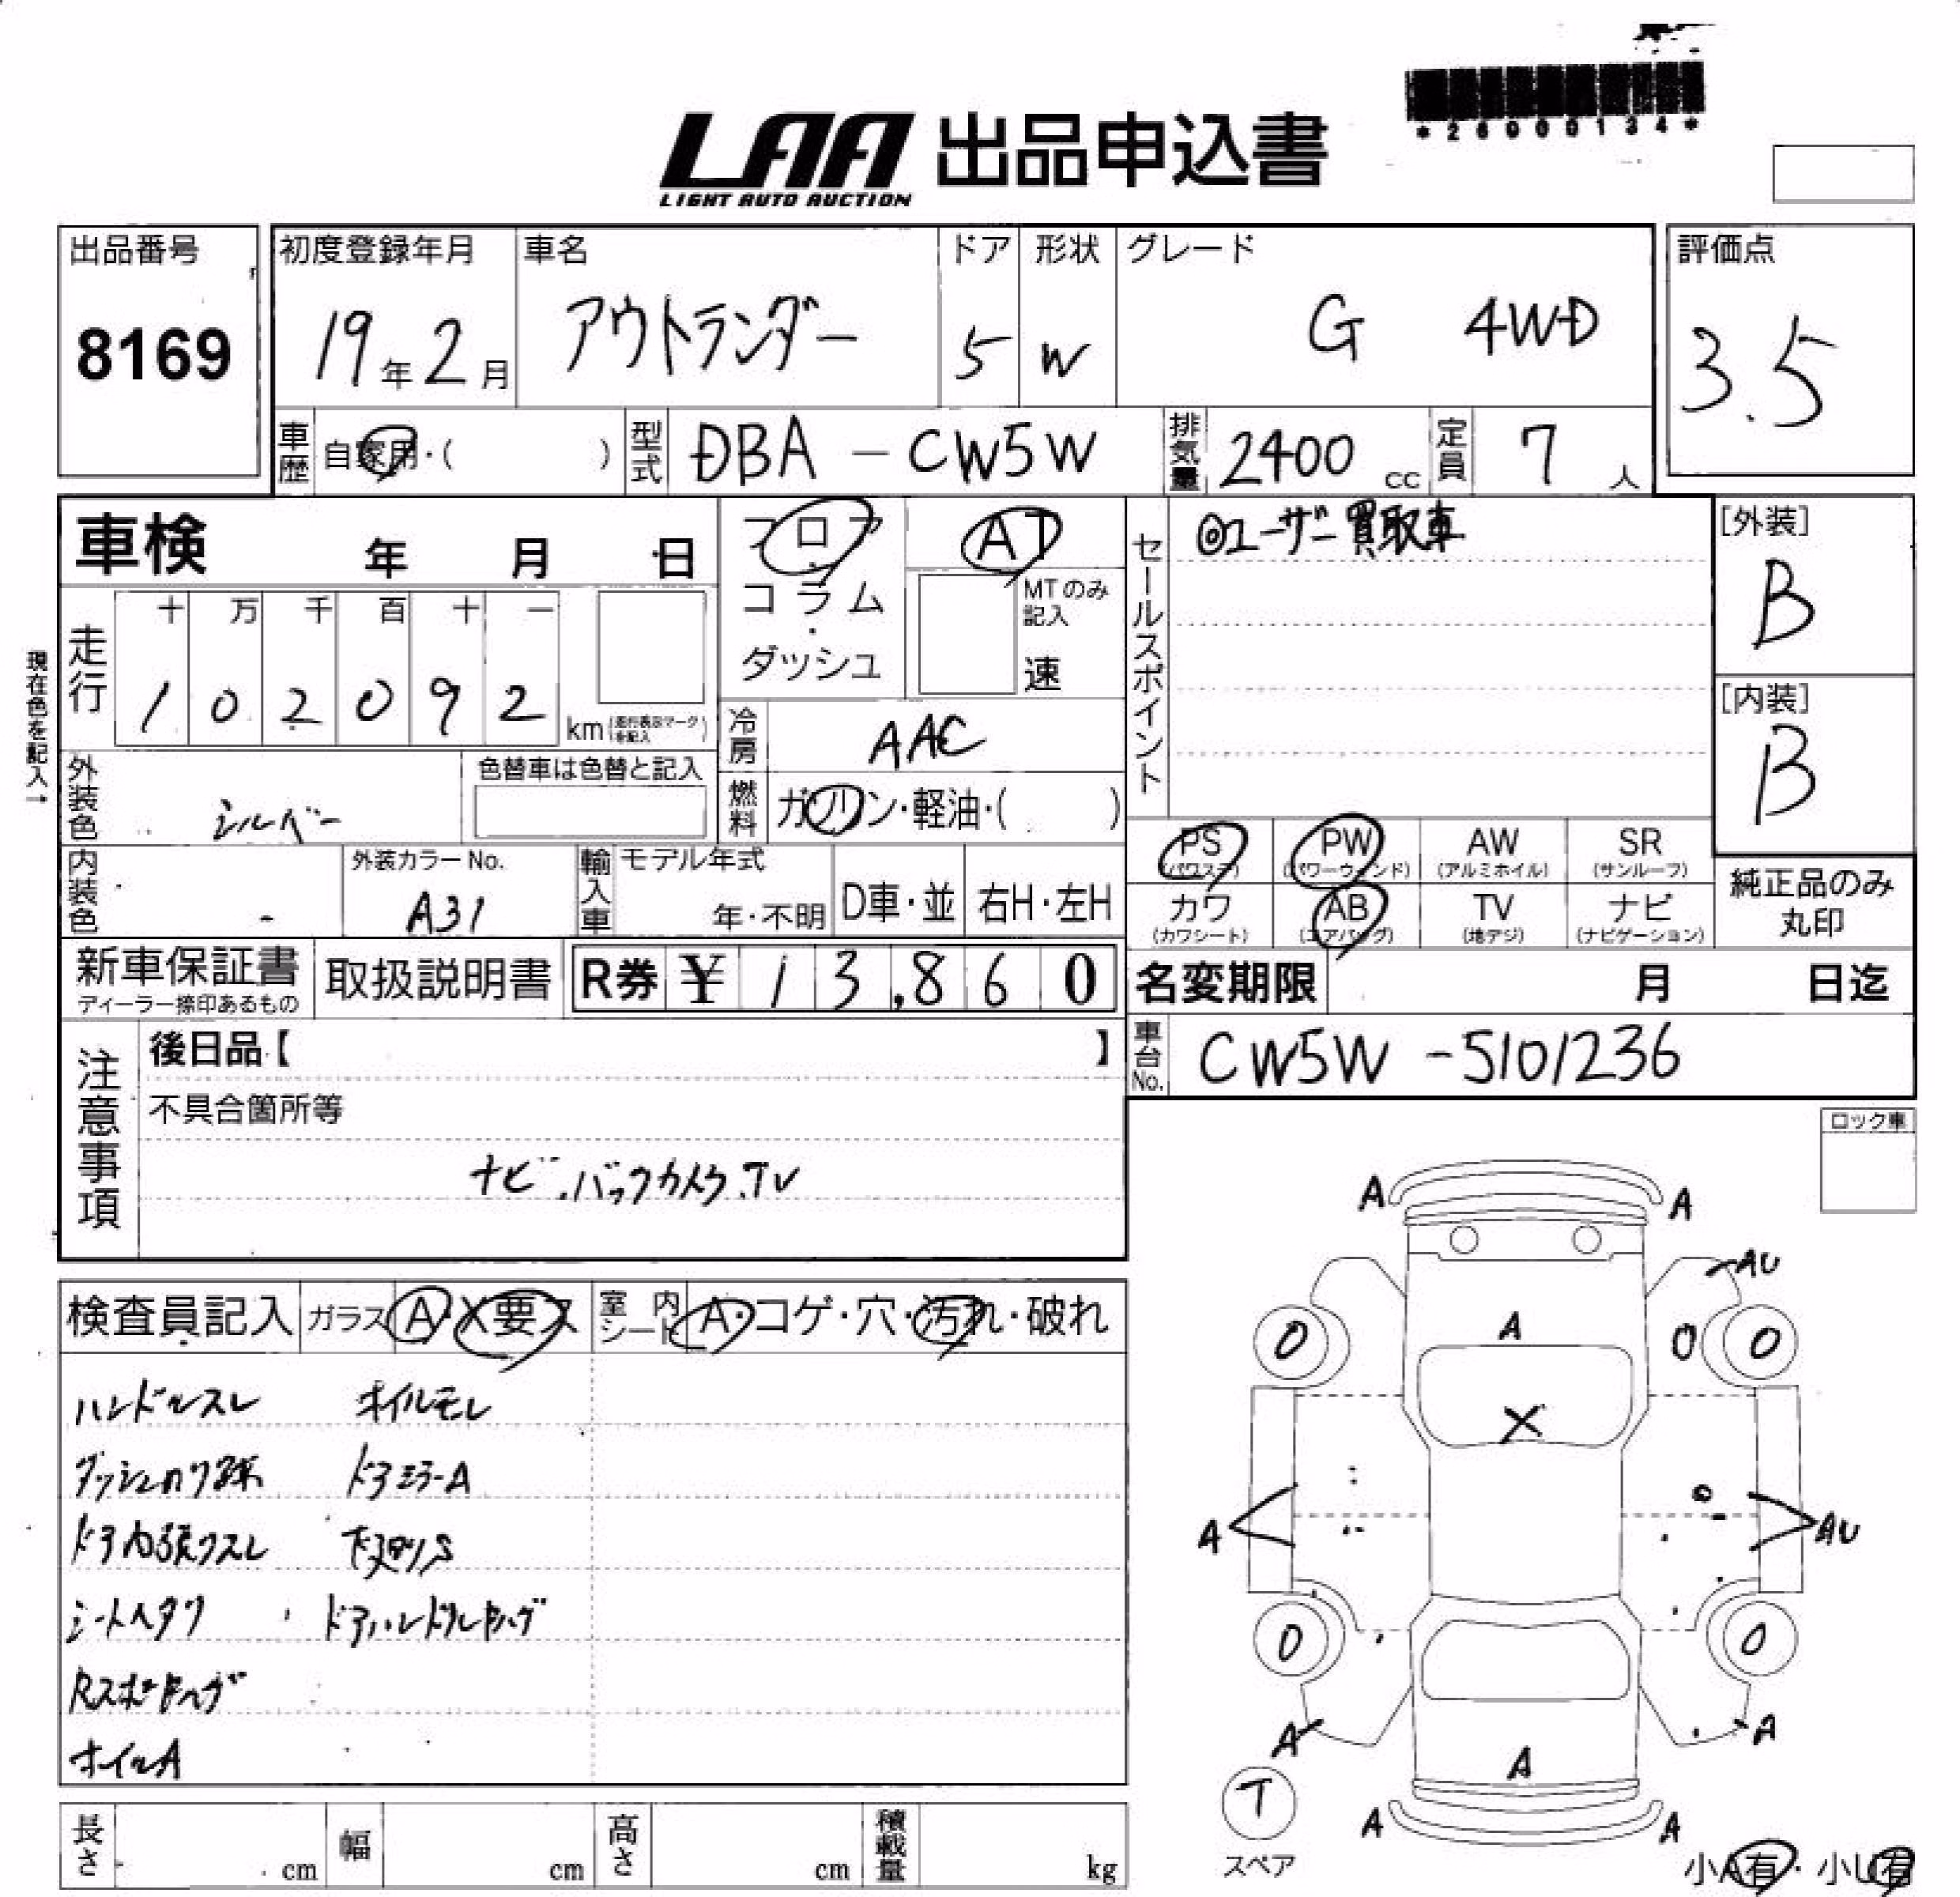 *26000134*
LAA 出品申込書
LIGHT AUTO AUCTION
出品番号
8169
初度登録年月
19年2月
車名
アウトランダー
ドア
5
形状
W
グレード
G 4WD
評価点
3.5
車歴
自家用・( )
型式
DBA-CW5W
排気量
2400cc
定員
7人
車検 年 月 日
フロア
・
コラム
・
ダッシュ
AT
MTのみ
記入
速
セールスポイント
◎ユーザー買取車
[外装]
B
[内装]
B
現在色を記入→
走行
十 万 千 百 十 一
1 0 2 0 9 2
km(走行表示マークを記入)
冷房
AAC
外装色
シルバー
色替車は色替と記入
燃料
ガソリン・軽油・( )
PS
(パワステ)
PW
(パワーウィンド)
AW
(アルミホイル)
SR
(サンルーフ)
カワ
(カワシート)
AB
(エアバッグ)
TV
(地デジ)
ナビ
(ナビゲーション)
純正品のみ
丸印
内装色
-
外装カラーNo.
A31
輸入車
モデル年式
年・不明
D車・並
右H・左H
新車保証書
ディーラー捺印あるもの
取扱説明書
R券 ¥13,860
名変期限 月 日迄
車台No.
CW5W-5101236
注意事項
後日品【 】
不具合箇所等
ナビ.バックカメラ.TV
ロック車
検査員記入
ガラス
A・X要ス
室内シート
A・コゲ・穴・汚れ・破れ
ハンドルスレ オイルモレ
ダッシュカワ跡 ドアミラーA
ドア内張クスレ 下廻りS
シートヘタリ ドアハンドルドハゲ
Rスポドハゲ
ホイルA
A
A
AU
A
0
0
0
X
A
AU
0
0
A
A
A
A
A
T
スペア
小A有・小U有
長さ cm
幅 cm
高さ cm
積載量 kg